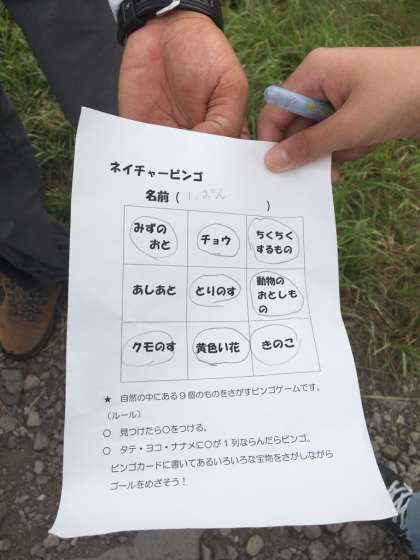 ネイチャービンゴ
名前（ ）
みずの
おと
チョウ
ちくちく
するもの
あしあと
とりのす
動物の
おとしも
の
クモのす
黄色い花
きのこ
★ 自然の中にある９個のものをさがすビンゴゲームです。
（ルール）
○ 見つけたら○をつける。
○ タテ・ヨコ・ナナメに○が１列ならんだらビンゴ。
ビンゴカードに書いてあるいろいろな宝物をさがしながら
ゴールをめざそう！